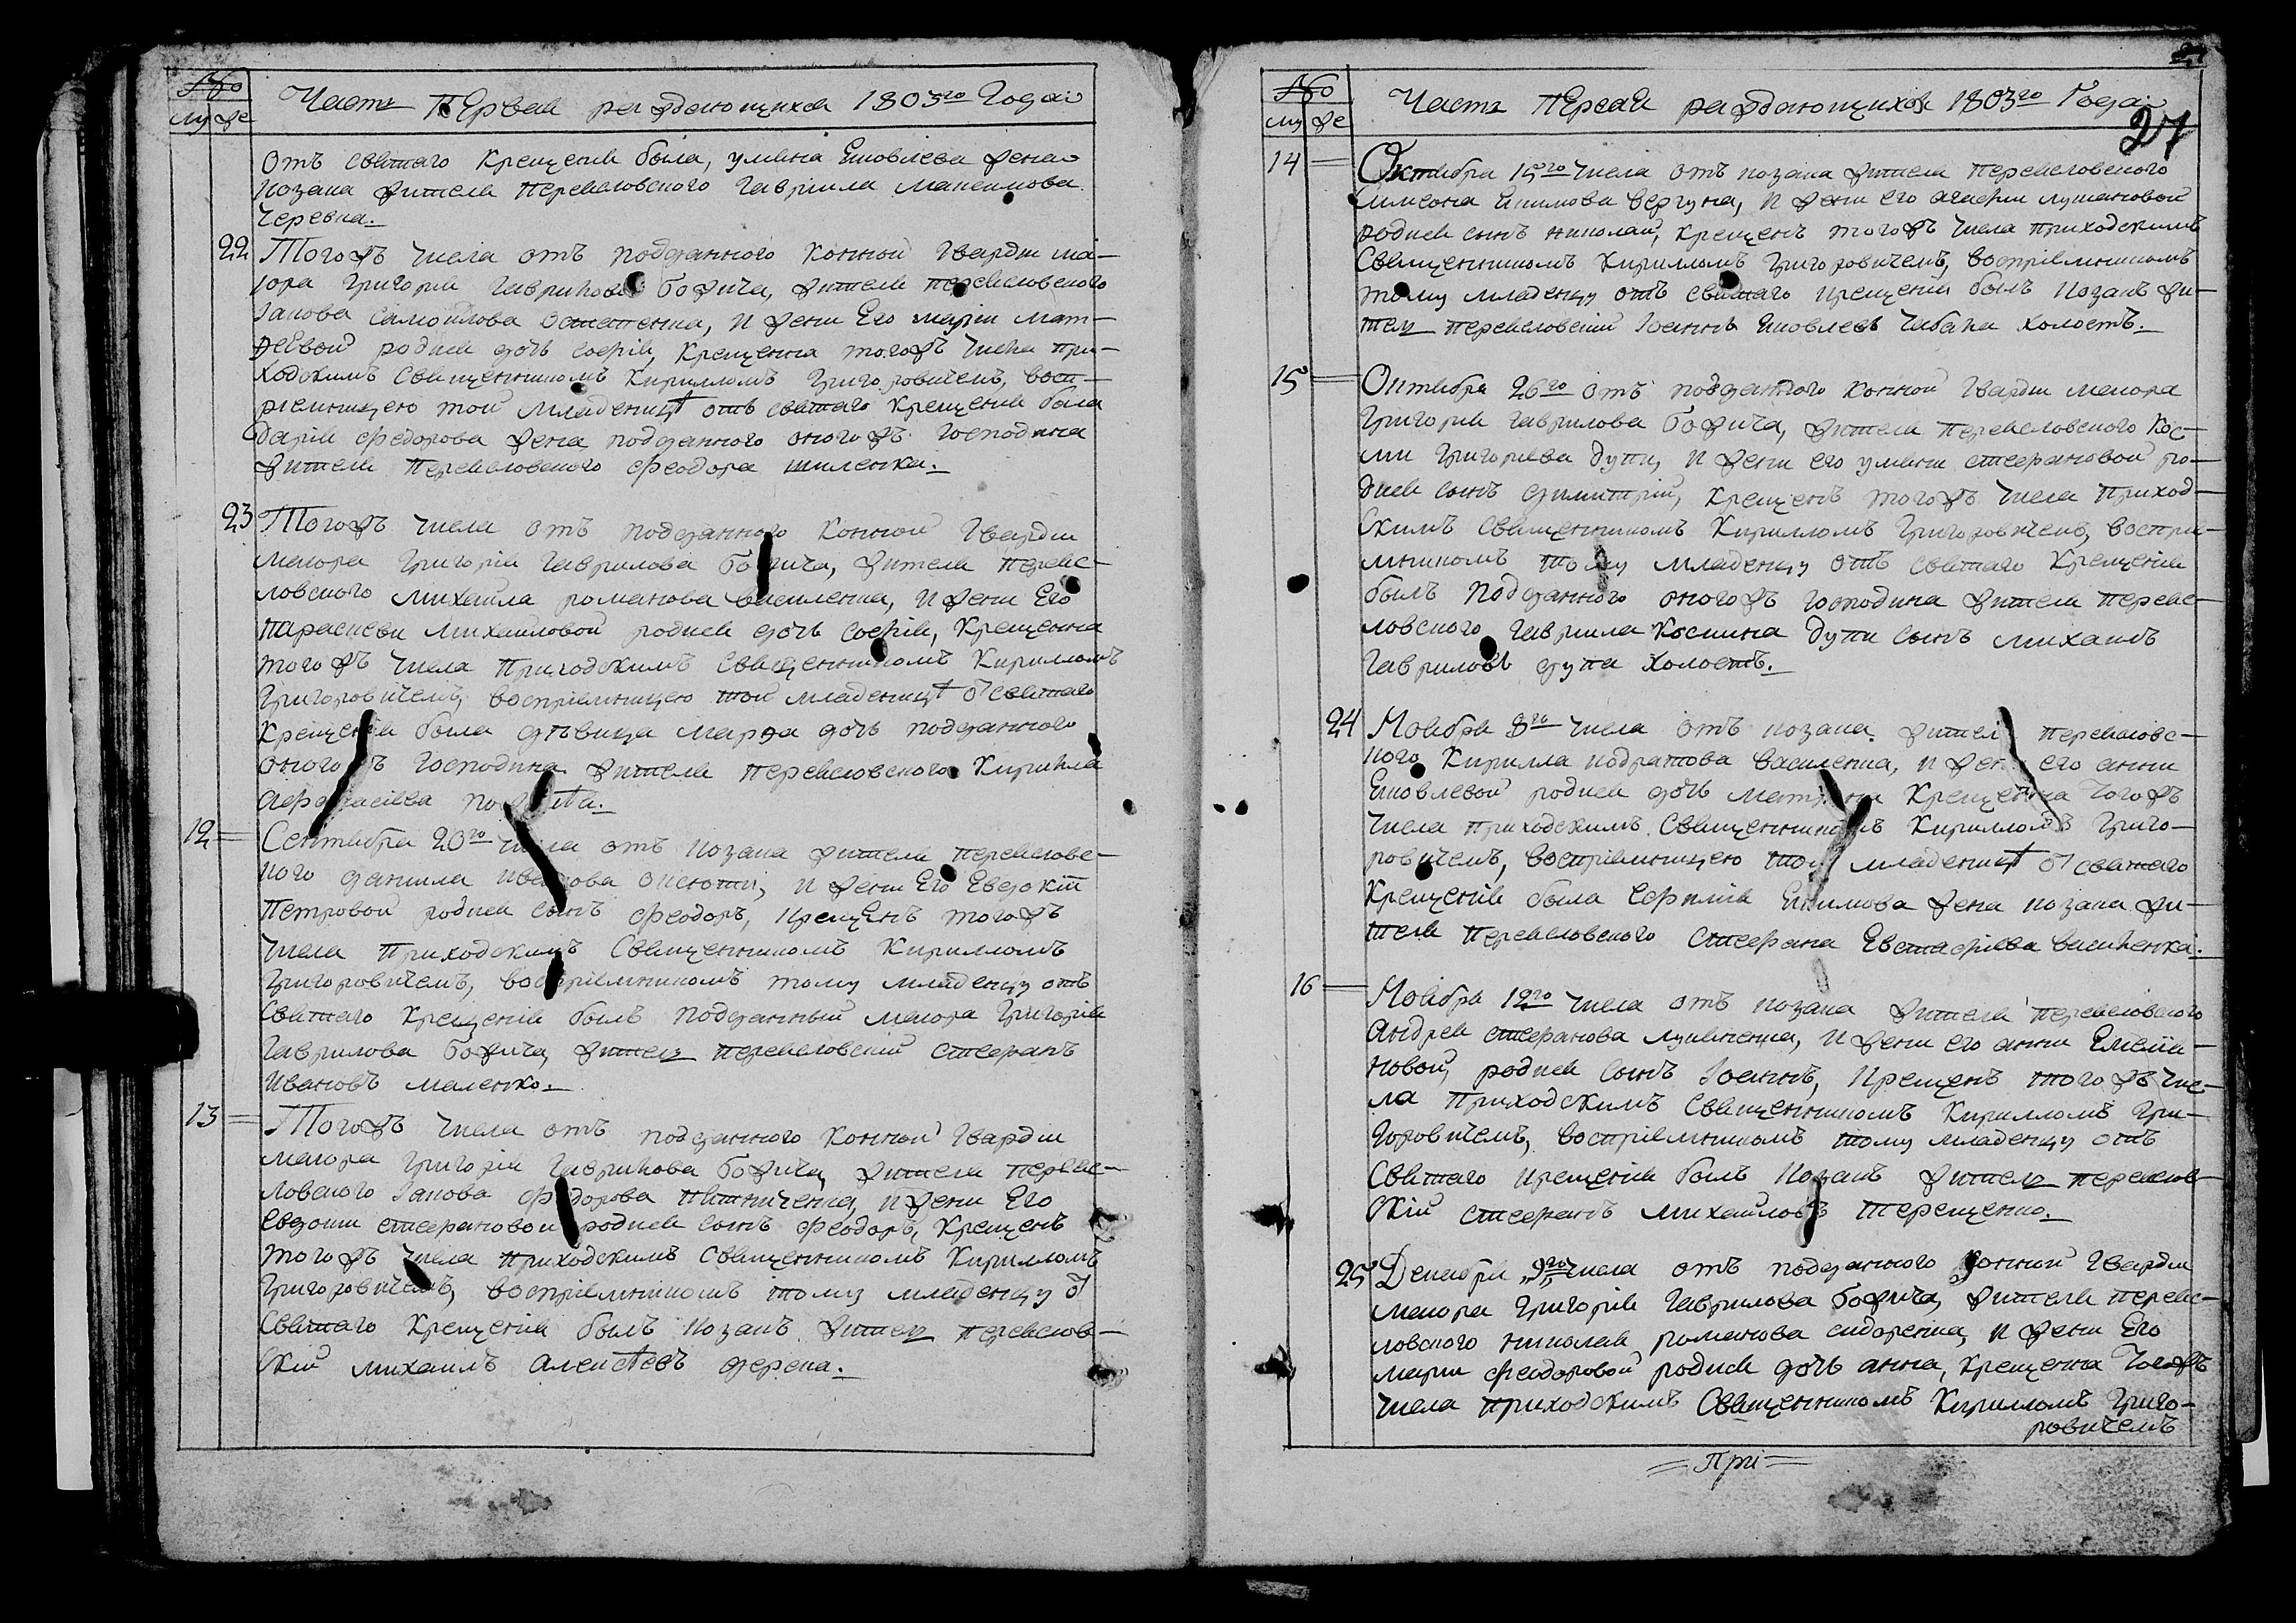 №
му же
Часть Первая раждающихся 1803го Года
отъ святаго крещения была, улияна Яковлева жена
козака жителя переясловского гавриила максимова
черевка.
22 Тогожъ числа отъ подданного конной гвардии ма-
iора григория гаврилова божича, жителя переясловского
Iакова самойлова остапенка, и жени Его марiи мат-
фѣевой родися дочь софiя, крещенна тогожъ числа при-
ходскимъ священникомъ Кирилломъ григоровичемъ, восп-
рiемницею той младеницѣ отъ святаго крещения была
дарiя федорова жена подданного оногожъ господина
жителя переясловского феодора шиленка.
23 Тогожъ числа отъ подданного конной гвардии
маиора григорiя гаврилова божича, жителя переяс-
ловского михаила романова василенка, и жени Его
параскеви михайловой родися дочь софiя, крещенна
тогожъ числа приходскимъ священникомъ Кирилломъ
григоровичемъ, воспрiемницею той младеницѣ от святаго
крещенiя была дѣвица марфа дочь подданного
оногожъ господина жителя переясловского Кирилла
афанасiева
12 Сентября 20го числа отъ козака жителя переясловс-
кого данила иванова и жени Его Евдокiи
Петровой родися сынъ феодоръ, крещенъ тогожъ
числа приходскимъ священникомъ Кирилломъ
григоровичемъ, воспрiемникомъ тому младенцу отъ
святаго крещенiя былъ подданный маiора григорiя
гаврилова божича, житель переясловский стефанъ
ивановъ маленко.
13 Тогожъ числа отъ подданного конной гвардiи
маиора григорiя гаврилова божича, жителя переяс-
ловского Iакова федорова пятниченка, и жени Его
евдокии стефановой родися сынъ феодоръ, крещенъ
тогожъ числа приходскимъ священникомъ Кирилломъ
григоровичемъ, воспрiемникомъ тому младенцу от
святаго крещенiя былъ козакъ житель переяслов-
скiй михаилъ алексѣевъ дерека.
№
му же
Часть Первая раждающихся 1803го Года
27
14 Октября 15го числа отъ козака жителя переясловского
симеона Якимова вергуна, и жени его агафiи лукяновой
родися сынъ николай, крещенъ тогожъ числа приходскимъ
священникомъ Кирилломъ григоровичемъ, воспрiемникомъ
тому младенцу отъ святаго крещенiя былъ козакъ жи-
тель переясловский Iоаннъ Яковлевъ чабака холостъ.
15 Октября 26го отъ подданного конной гвардии маиора
григория гаврилова божича, жителя переясловского кос-
ми григорiева дупи, и жени его улияни стефановой ро-
дися сынъ димитрiй, крещенъ тогожъ числа приход-
скимъ священникомъ Кирилломъ григоровичемъ, воспрiе-
мникомъ тому младенцу отъ святаго крещенiя
былъ подданного оногожъ господина жителя переяс-
ловского гавриила космина дупи сынъ михаилъ
гавриловъ дупа холостъ.
24 Ноября 8го числа отъ козака жителя переясловс-
кого Кирилла кодратова василенка, и жени его анни
Яковлевой родися дочь матрона крещенна тогожъ
числа приходскимъ священникомъ Кирилломъ григо-
ровичемъ, воспрiемницею той младеницѣ от святаго
крещенiя была Якимова жена козака жи-
теля переясловского стефана Евстафiева василенка.
16 Ноября 12го числа отъ козака жителя переясловского
андрея стефанова лукяненка, и жени его анни Емелiя-
новой, родися сынъ Iоаннъ, крещенъ тогожъ чис-
ла приходскимъ священникомъ Кирилломъ гри-
горовичемъ, воспрiемникомъ тому младенцу отъ
святаго крещенiя былъ козакъ житель переяслов-
скiй стефанъ михайловъ терещенко.
25 Декабря 9го числа отъ подданного конной гвардии
маиора григорiя гаврилова божича, жителя переяс-
ловского николая романова сидоренка, и жени Его
марии феодоровой родися дочь анна, крещенна тогожъ
числа приходскимъ священникомъ Кирилломъ григо-
ровичемъ
=При=